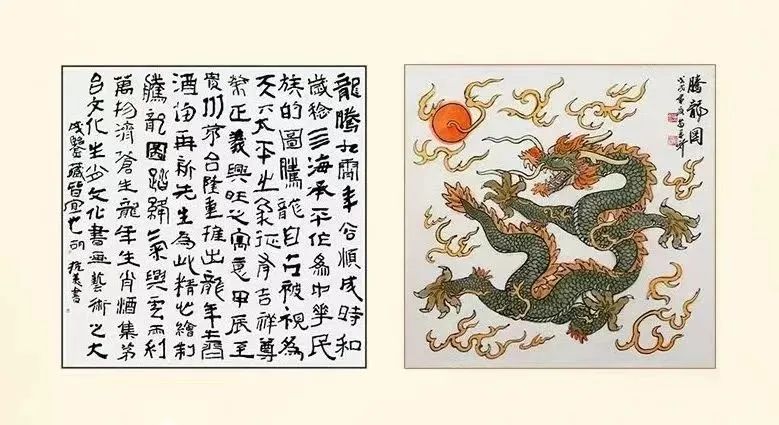 龍騰九霄年谷順成時和
歲稔三海承平作為中華民
族的圖騰龍自古被視為
天下太平之象征有吉祥尊
榮正義興旺之寓意甲辰至
貴州茅台隆重推出龍年生肖
酒伯再新先生為此精心繪制
騰龍圖踏絳氣興雲雨利
萬物濟蒼生龍年生肖酒集茅
台文化生肖文化書畫藝術之大
成鑒藏皆宜也 胡抗美書
騰龍圖